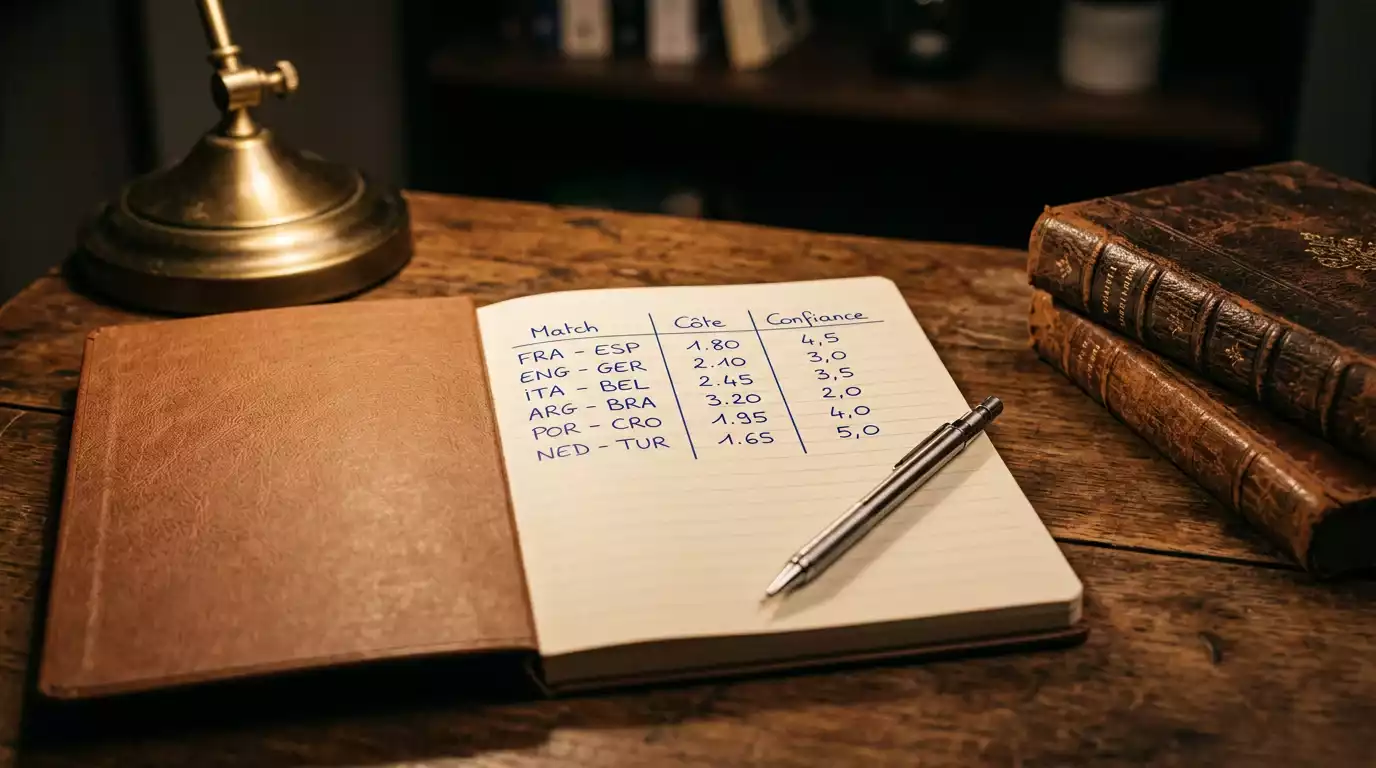 Match Côte Confiance
FRA - ESP 1.80 4,5
ENG - GER 2.10 3,0
ITA - BEL 2.45 3,5
ARG - BRA 3.20 2,0
POR - CRO 1.95 4,0
NED - TUR 1.65 5,0